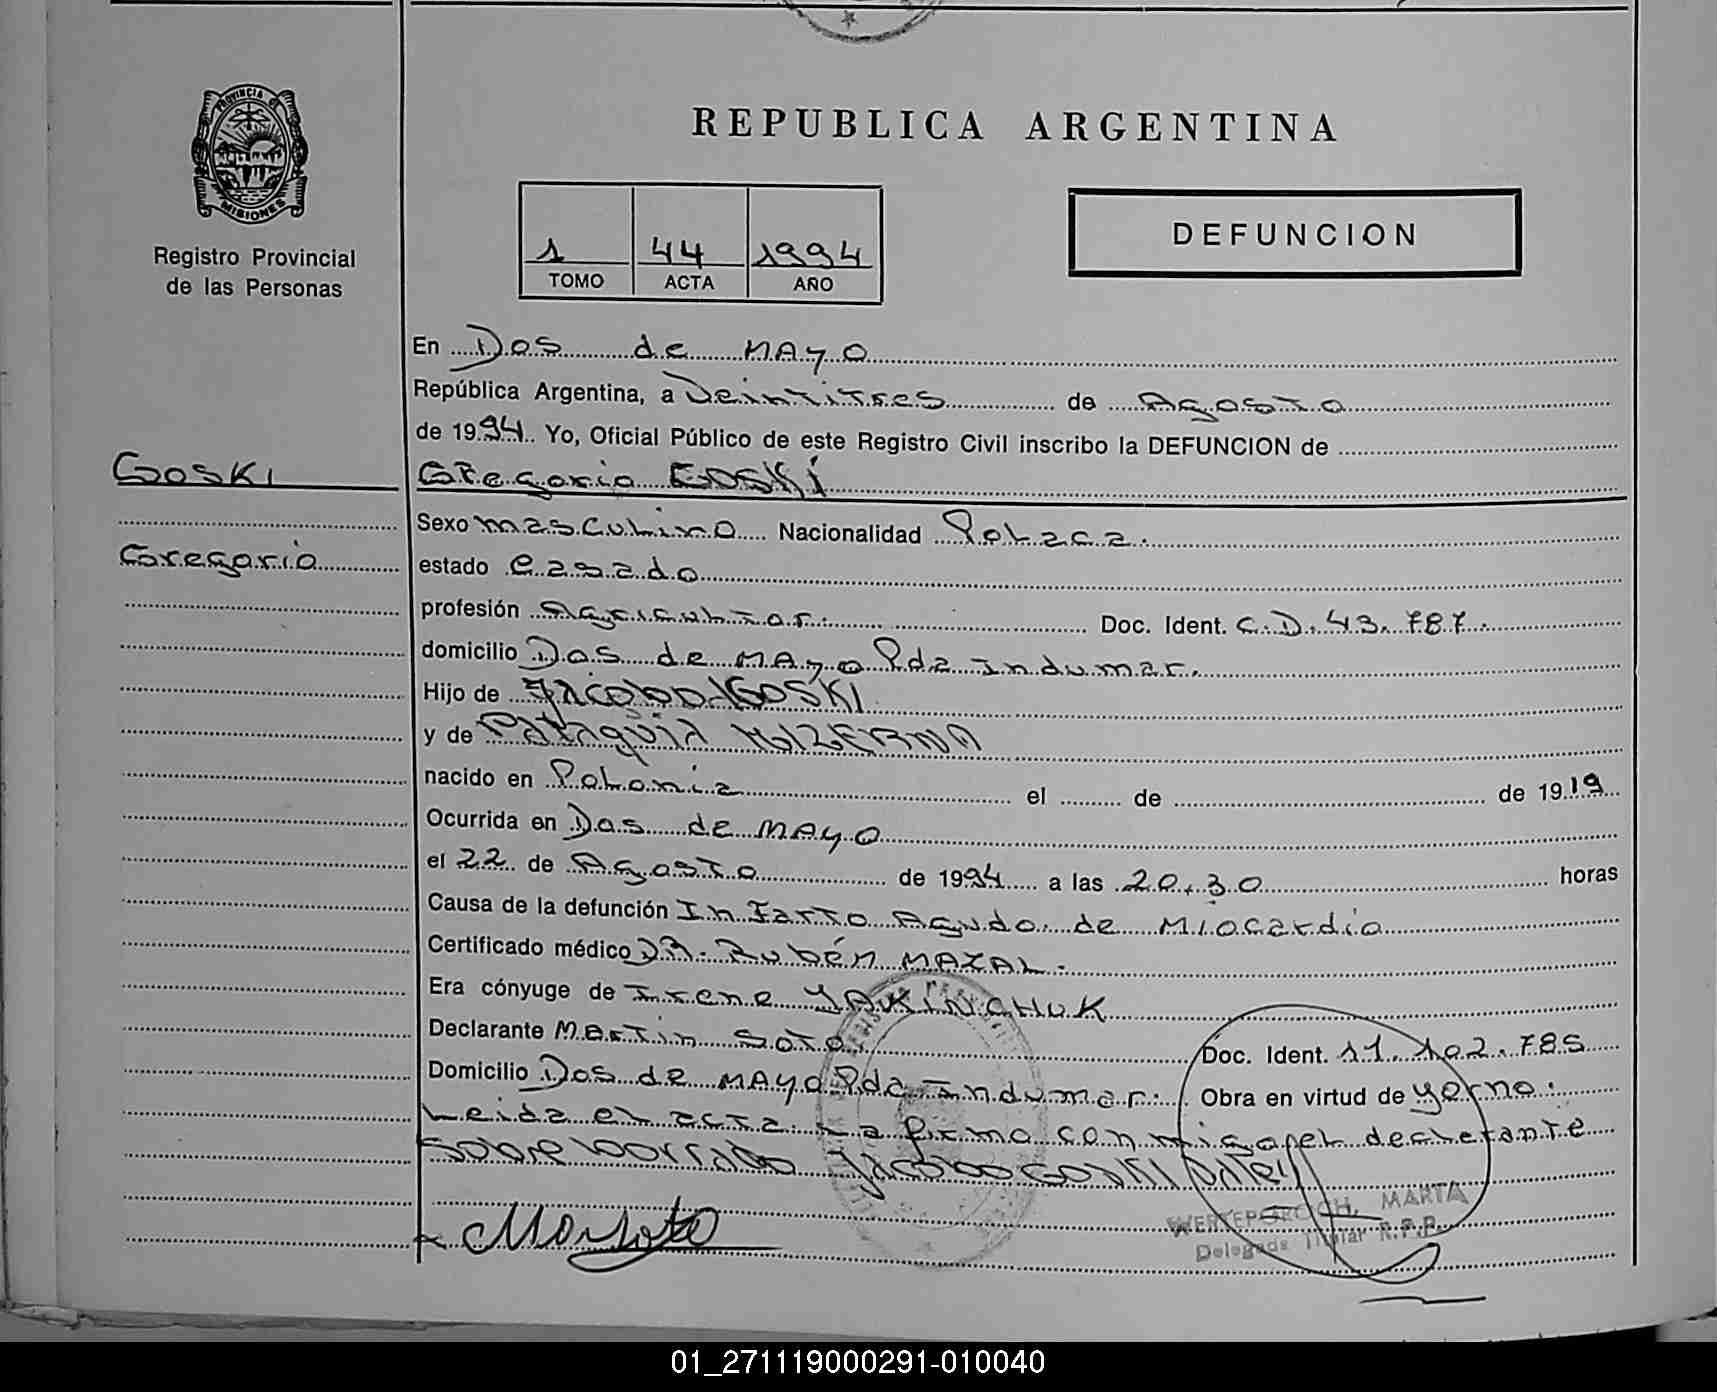 PROVINCIA DE
MISIONES
Registro Provincial
de las Personas
REPUBLICA ARGENTINA
1 44 1994
TOMO ACTA AÑO
DEFUNCION
En Dos de MAyO
República Argentina, a Veintitres de Agosto
de 1994. Yo, Oficial Público de este Registro Civil inscribo la DEFUNCION de
GOSKI
Gregorio GOSKI
Gregorio
Sexo masculino Nacionalidad Polaca.
estado casado
profesión Agricultor. Doc. Ident. C.D. 43.787.
domicilio Dos de MAyo Pda Indumar.
Hijo de Jacobo GOSKI
y de
nacido en Polonia el de de 1919
Ocurrida en Dos de MAyO
el 22 de Agosto de 1994 a las 20,30 horas
Causa de la defunción Infarto Agudo de Miocardio
Certificado médico DR. Rubén MAZAL.
Era cónyuge de Irene YAKINCHUK
Declarante Martin Soto Doc. Ident. 11.102.785
Domicilio Dos de MAyo Pda Indumar. Obra en virtud de yerno:
Leida el acta La firma con migo el declarante
Sobre borrado Jacobo GOSKI Vale
MARTA
Delegada Titular R.P.P.
01_271119000291-010040